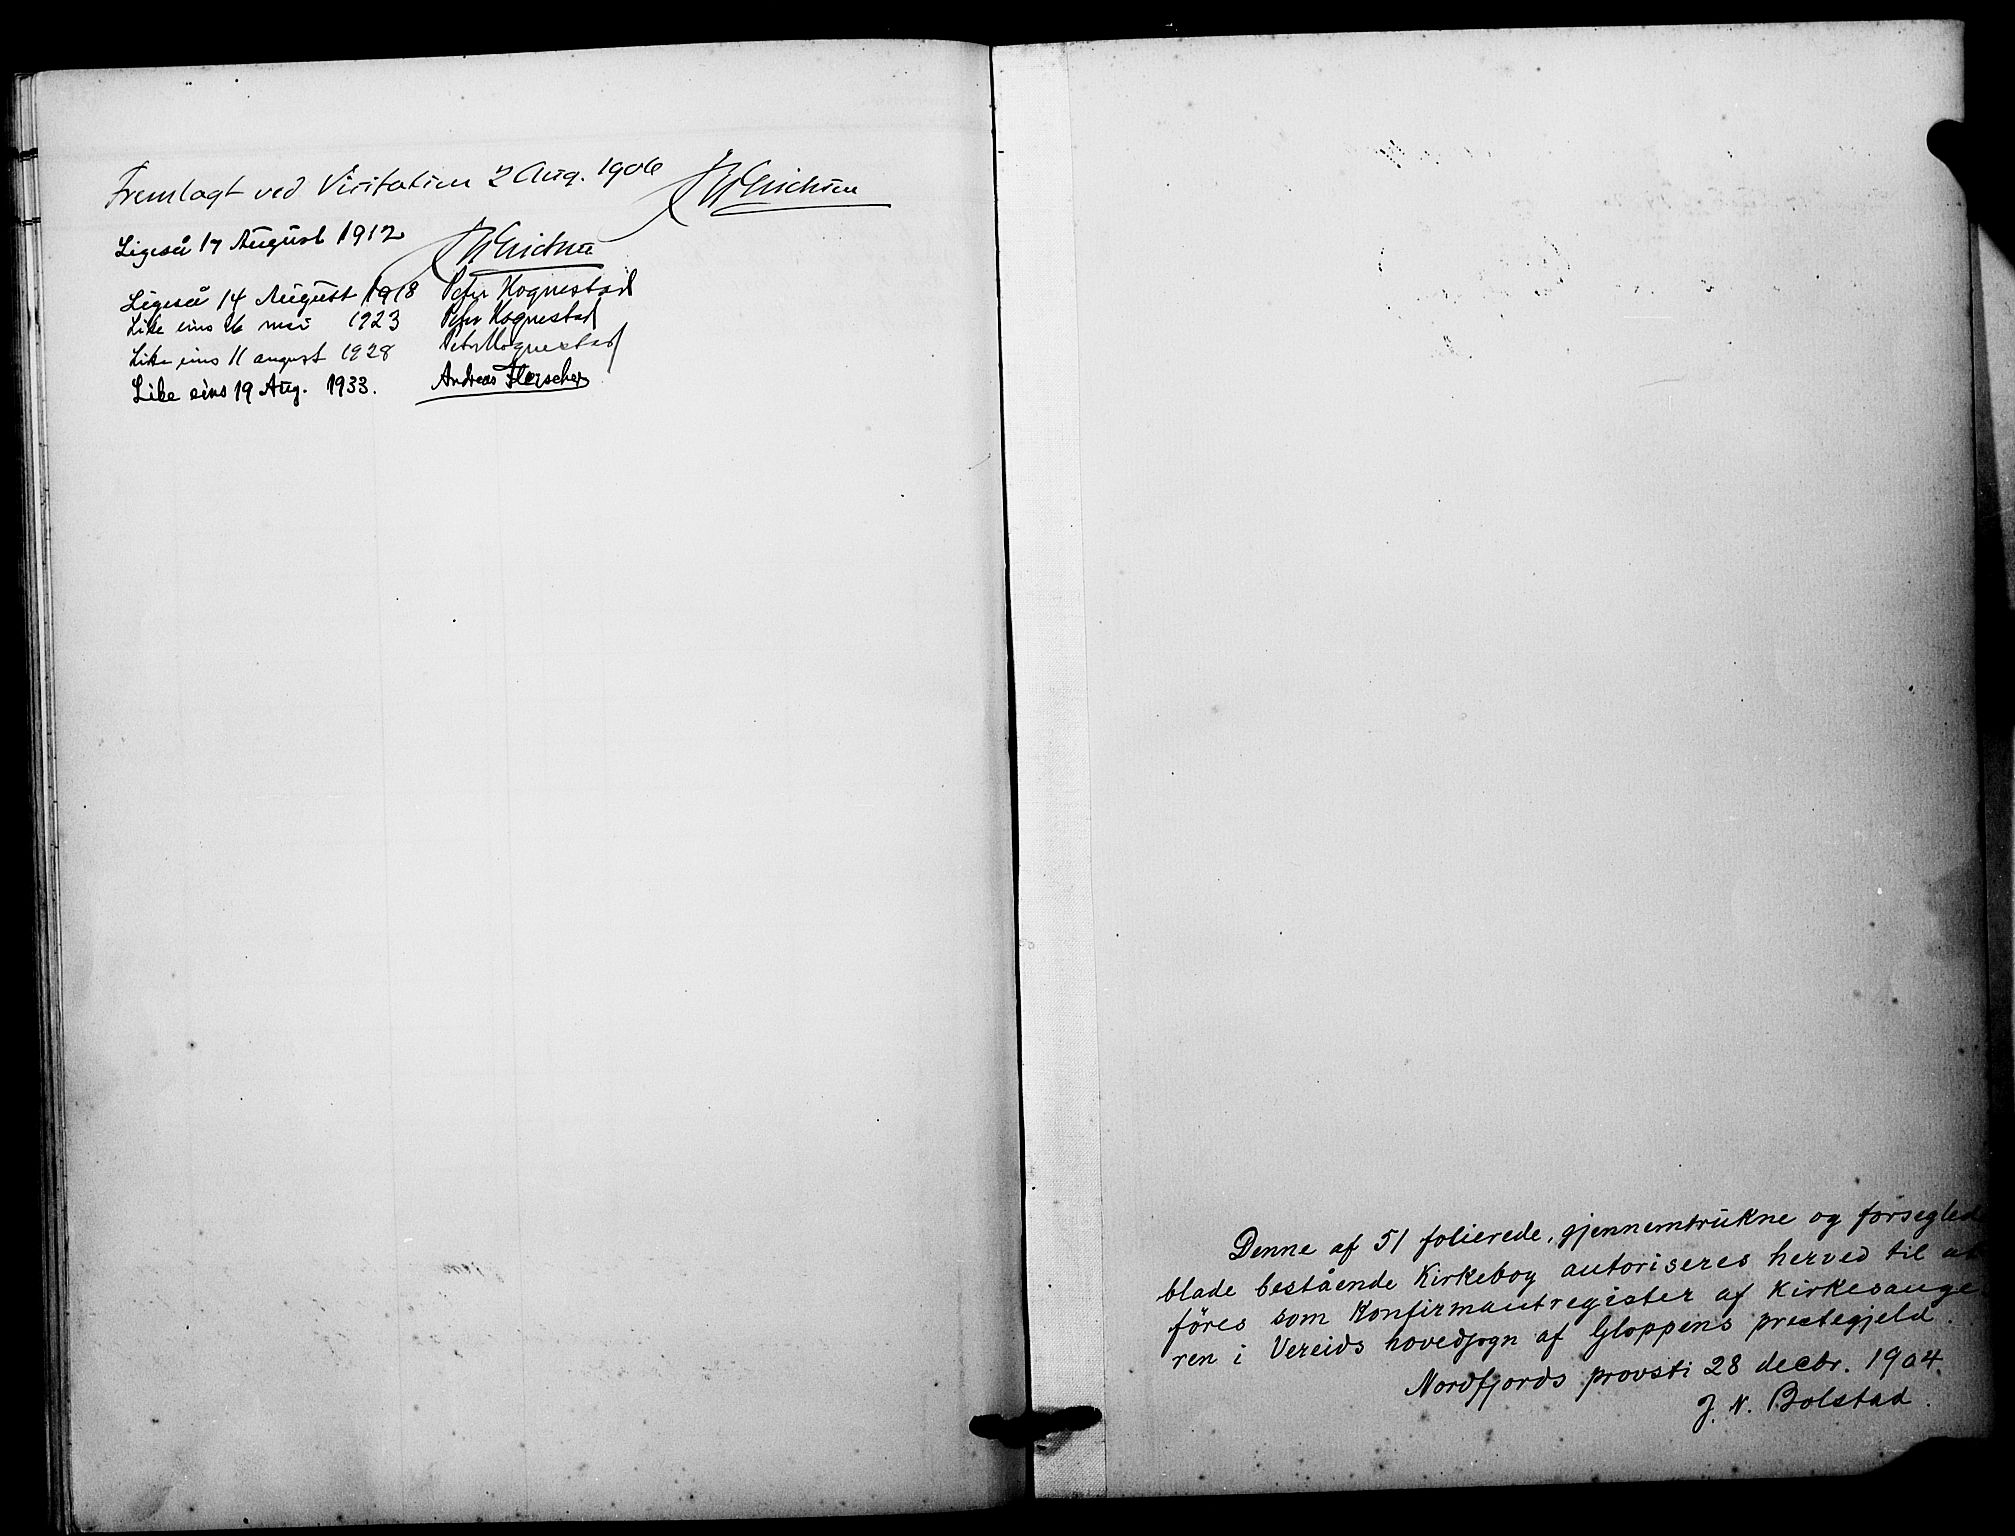 Fremlagt ved Visitation 2 Aug. 1906 J W Erichsen
Ligeså 17 August 1912 J W Erichsen
Ligeså 14 August 1918 Peter Hognestad
Like eins 16 mai 1923 Peter Hognestad
Like eins 11 august 1928 Peter Hognestad
Like eins 19 Aug. 1933. Andreas Fleischer
Denne af 51 folierede, gjennemtrukne og forseglede
blade bestående Kirkebog autoriseres herved til at
föres som Konfirmantregister af Kirkesange-
ren i Vereids hovedsogn af Gloppens prestegjeld.
Nordfjords provsti 28 decbr. 1904
J. N. Bolstad.